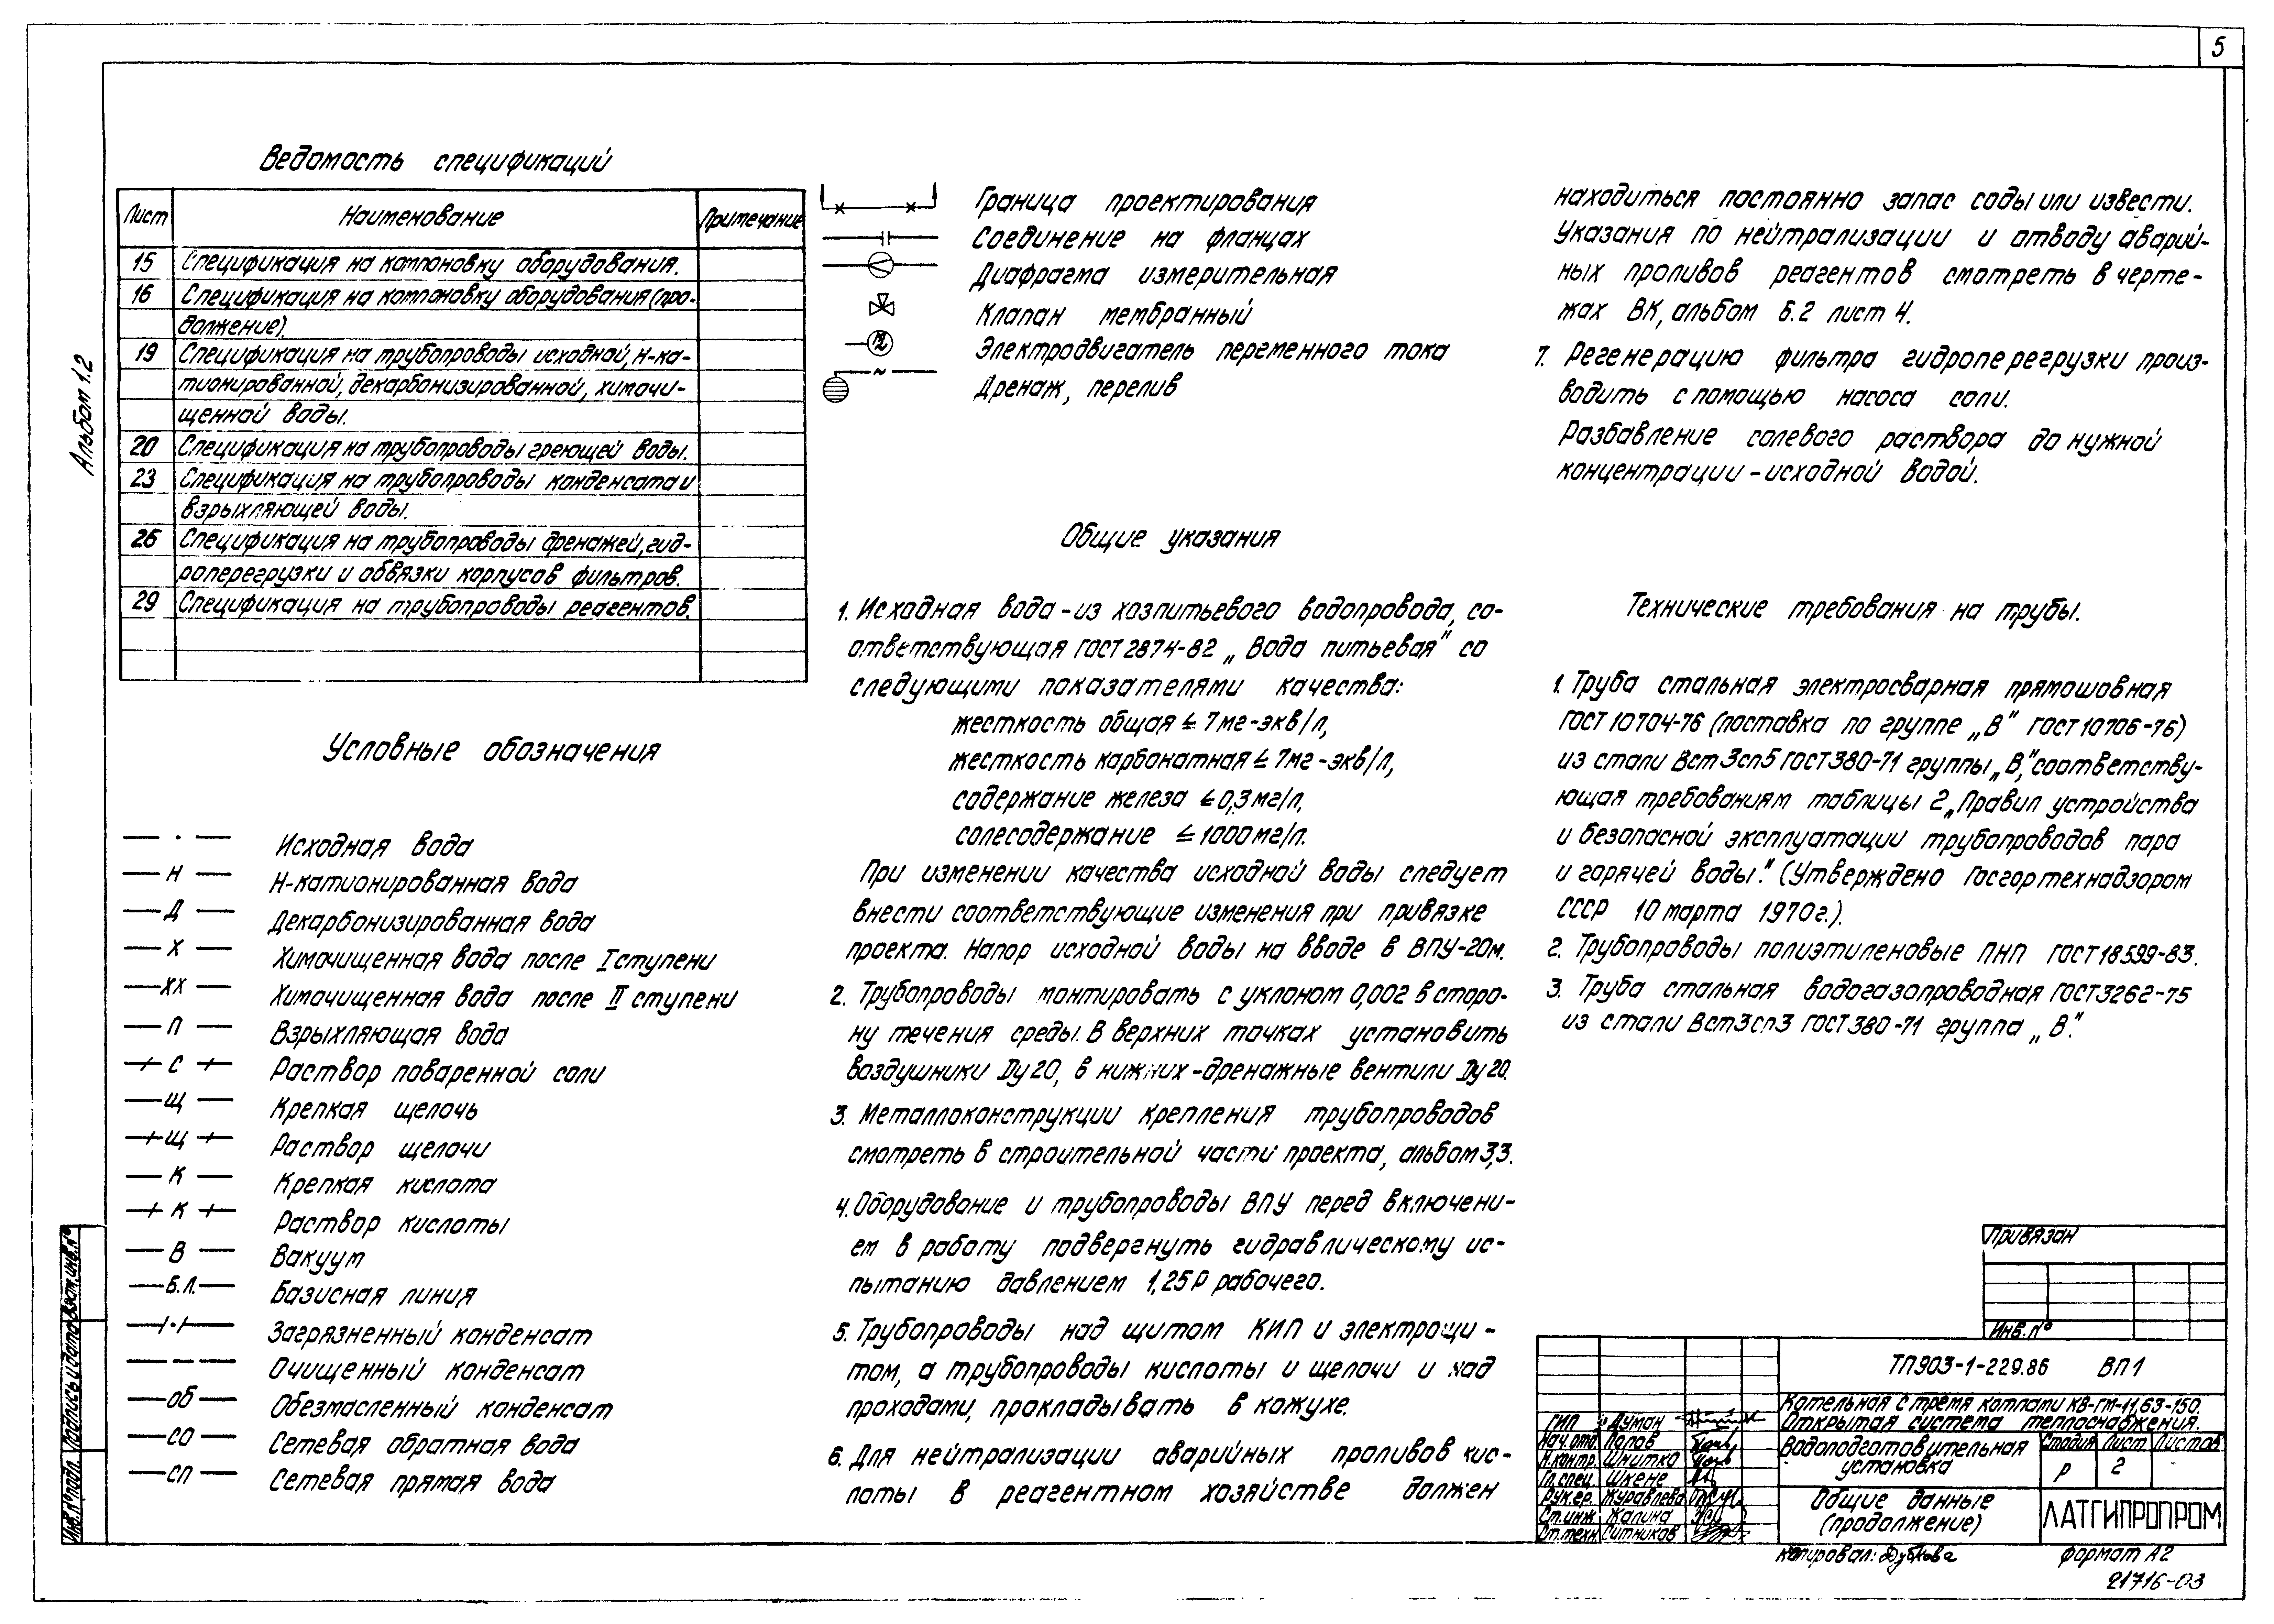 5
Альбом 1.2
Ведомость спецификаций
Лист Наименование Примечание
15 Спецификация на компоновку оборудования.
16 Спецификация на компоновку оборудования (про-
должение).
19 Спецификация на трубопроводы исходной, Н-ка-
тионированной, декарбонизированной, химочи-
щенной воды.
20 Спецификация на трубопроводы греющей воды.
23 Спецификация на трубопроводы конденсата и
взрыхляющей воды.
26 Спецификация на трубопроводы дренажей, гид-
роперегрузки и обвязки корпусов фильтров.
29 Спецификация на трубопроводы реагентов.
Условные обозначения
Исходная вода
Н Н-катионированная вода
Д Декарбонизированная вода
Х Химочищенная вода после I ступени
ХХ Химочищенная вода после II ступени
П Взрыхляющая вода
С Раствор поваренной соли
Щ Крепкая щелочь
Щ Раствор щелочи
К Крепкая кислота
К Раствор кислоты
В Вакуум
Б.Л. Базисная линия
Загрязненный конденсат
Очищенный конденсат
об Обезмасленный конденсат
СО Сетевая обратная вода
СП Сетевая прямая вода
Граница проектирования
Соединение на фланцах
Диафрагма измерительная
Клапан мембранный
Электродвигатель переменного тока
Дренаж, перелив
Общие указания
1. Исходная вода - из хозпитьевого водопровода, со-
ответствующая ГОСТ 2874-82 „Вода питьевая" со
следующими показателями качества:
жесткость общая ≤ 7 мг-экв/л,
жесткость карбонатная ≤ 7 мг-экв/л,
содержание железа ≤ 0,3 мг/л,
солесодержание ≤ 1000 мг/л.
При изменении качества исходной воды следует
внести соответствующие изменения при привязке
проекта. Напор исходной воды на вводе в ВПУ-20м.
2. Трубопроводы монтировать с уклоном 0,002 в сторо-
ну течения среды. В верхних точках установить
воздушники Ду 20, в нижних - дренажные вентили Ду 20.
3. Металлоконструкции крепления трубопроводов
смотреть в строительной части проекта, альбом 3,3.
4. Оборудование и трубопроводы ВПУ перед включени-
ем в работу подвергнуть гидравлическому ис-
пытанию давлением 1,25 Р рабочего.
5. Трубопроводы над щитом КИП и электрощи-
том, а трубопроводы кислоты и щелочи и над
проходами, прокладывать в кожухе.
6. Для нейтрализации аварийных проливов кис-
лоты в реагентном хозяйстве должен
находиться постоянно запас соды или извести.
Указания по нейтрализации и отводу аварий-
ных проливов реагентов смотреть в черте-
жах ВК, альбом 6.2 лист 4.
7. Регенерацию фильтра гидроперегрузки произ-
водить с помощью насоса соли.
Разбавление солевого раствора до нужной
концентрации - исходной водой.
Технические требования на трубы.
1. Труба стальная электросварная прямошовная
ГОСТ 10704-76 (поставка по группе „В" ГОСТ 10706-76)
из стали Вст3сп5 ГОСТ 380-71 группы „В," соответству-
ющая требованиям таблицы 2 „Правил устройства
и безопасной эксплуатации трубопроводов пара
и горячей воды." (Утверждено Госгортехнадзором
СССР 10 марта 1970 г.).
2. Трубопроводы полиэтиленовые ПНП ГОСТ 18599-83.
3. Труба стальная водогазопроводная ГОСТ 3262-75
из стали Вст3сп3 ГОСТ 380-71 группа „В."
Привязан
Инв. №
ТП903-1-229.86 ВП1
Котельная с тремя котлами КВ-ГМ-11,63-150.
Открытая система теплоснабжения.
ГИП Думан
Нач.отд. Попов
Н.контр. Шнитка
Гл.спец. Шкене
Рук.гр. Журавлева
Ст.инж. Жалина
Ст.техн. Ситников
Водоподготовительная
установка
Стадия Лист Листов
Р 2
Общие данные
(продолжение)
ЛАТГИПРОПРОМ
Копировал: Дубкова формат А2
21716-03
Взам. инв. №
Подпись и дата
Инв. № подл.